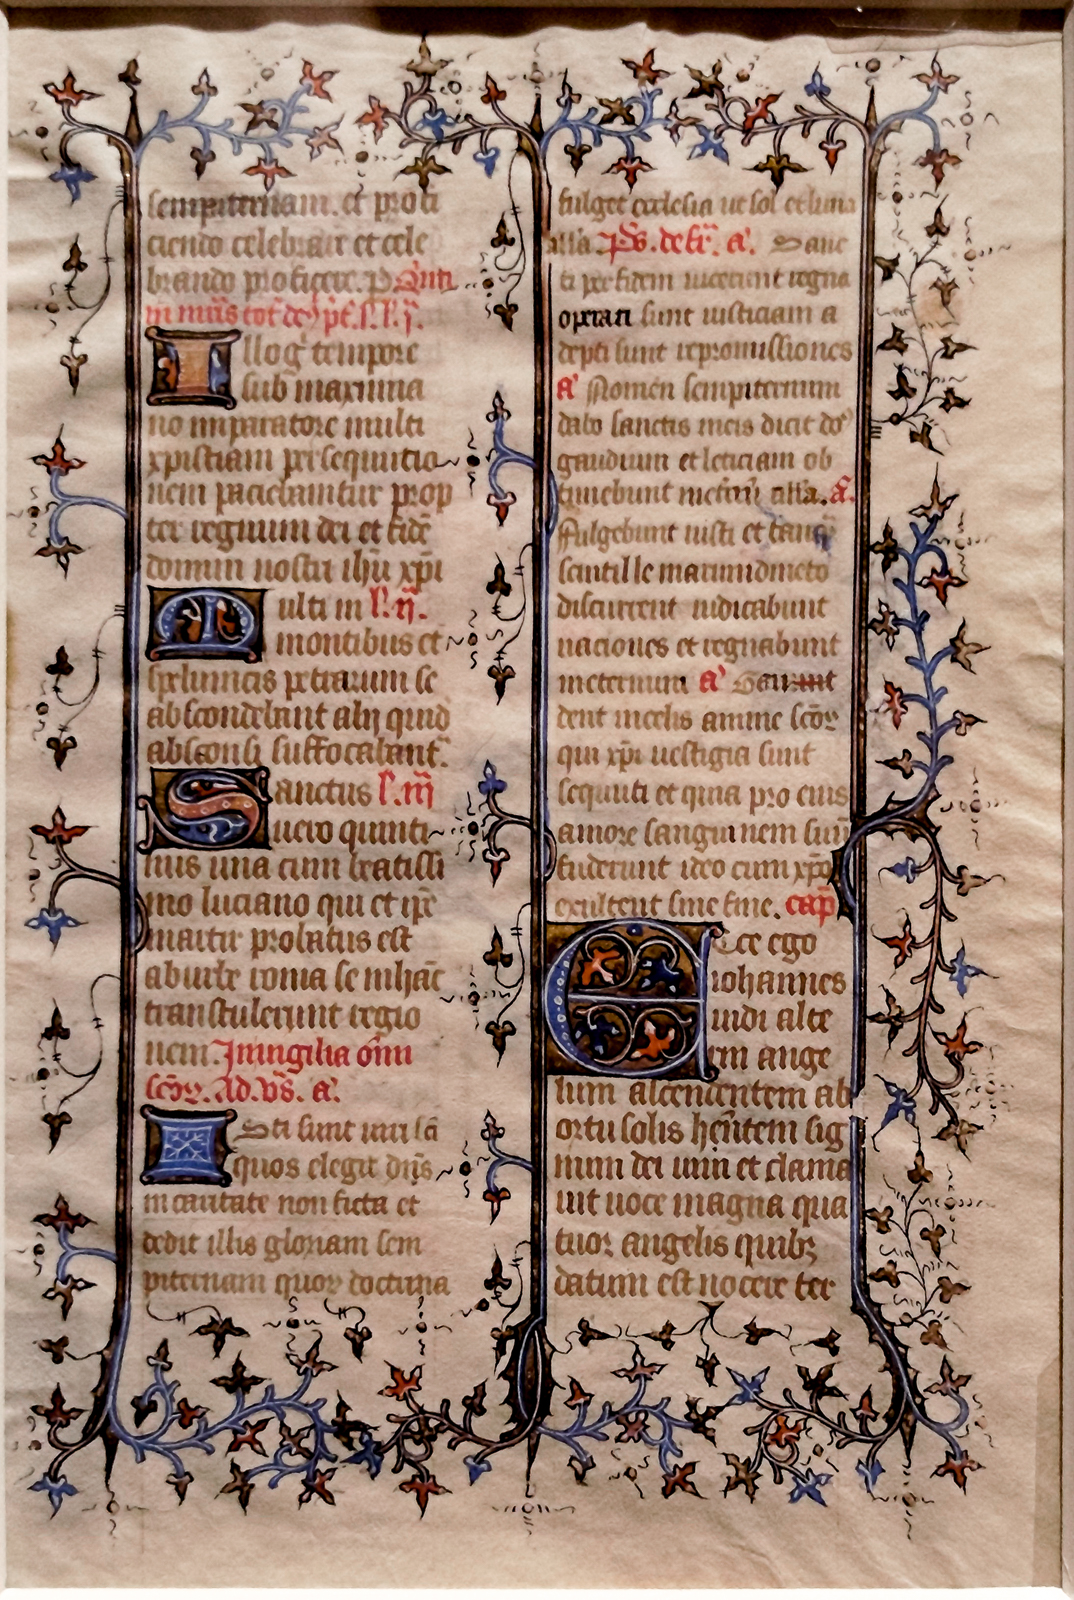 sempiternam. et profi
ciendo celebrare et cele
brando proficere. P Quīti
m mr̄is tot de p̄t. l'. I.
Illoꝫ tempore
sub maximia
no imparatore multi
xpistiam persequutio
nem paciebantur prop
ter regnum dei et fidē
domini nostri ihū xpi
Multi in l'. ij.
montibus et
speluncis petrarum se
abscondebant alij quid
absconsi suffocabant.
Sanctus l'. iij
uero quinti
nus una cum beatissi
mo luciano qui et ip̄e
martir probatus est
ab urbe roma se in hāc
transtulerunt regio
nem. In uigilia om̄i
sc̄oꝝ. ad. vs̄. a'.
Isti sunt uiri sc̄i
quos elegit dn̄s
in caritate non ficta et
dedit illis gloriam sem
piternam quoꝝ doctrina
fulget ecclesia ut sol et luna
all'a. Ps̄. de fr̄. a'. Sanc
ti per fidem uicerunt regna
operati sunt iusticiam a
depti sunt repromissiones
a' Nomen sempiternum
dabo sanctis meis dicit do'
gaudium et leticiam ob
tinebunt in etn̄ū all'a. a'.
Fulgebunt iusti et tanq̄
scintille in arundineto
discurrent iudicabunt
naciones et regnabunt
in eternum a' Gau
dent in celis anime sc̄oꝝ
qui xp̄i uestigia sunt
sequuti et quia pro eius
amore sanguinem suū
fuderunt ideo cum xp̄o
exultent sine fine. cap̄
Ecce ego
iohannes
uidi alte
rm ange
lum ascendentem ab
ortu solis hēntem sig
num dei uiui et clama
uit uoce magna qua
tuor angelis quibꝫ
datum est nocere ter